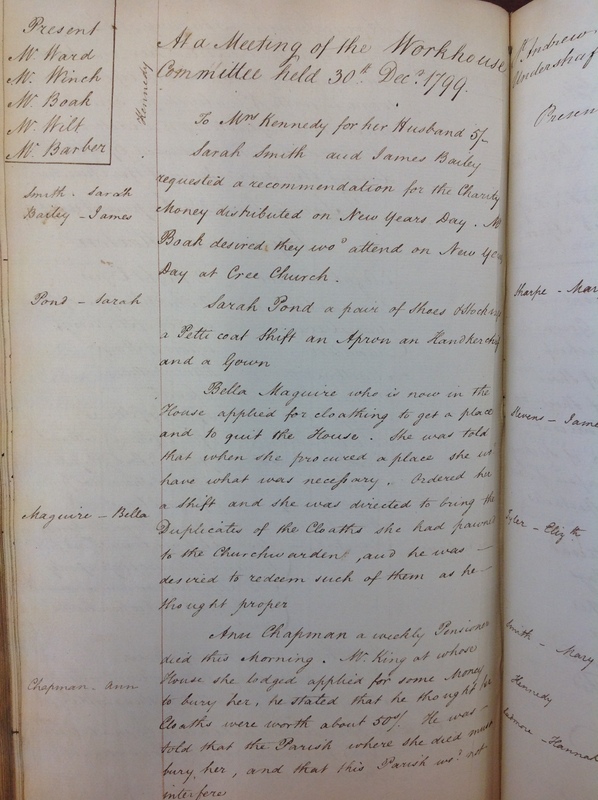 Present
Mr. Ward
Mr. Winch
Mr. Boak
Mr. Wilt
Mr. Barber
Kennedy
At a Meeting of the Workhouse
Committee held 30th Decr. 1799.
To Mrs Kennedy for her Husband 5/-
Smith . Sarah
Bailey - James
Sarah Smith and James Bailey
requested a recommendation for the Charity
Money distributed on New Years Day . Mr
Boak desired they wod attend on New Years
Day at Cree Church .
Pond - Sarah
Sarah Pond a pair of Shoes & Stockings
a Petticoat Shift an Apron an Handkerchief
and a Gown
Bella Maguire who is now in the
House applied for cloathing to get a place
and to quit the House . She was told
that when she procured a place she
have what was necessary . Ordered her
Maguire - Bella
a Shift and she was directed to bring the
Duplicates of the Cloaths she had pawned
to the Churchwarden , and he was -
desired to redeem such of them as he -
thought proper
Chapman - Ann
Ann Chapman a weekly Pensioner
died this Morning . Mr. King at whose
House she lodged applied for some Money
to bury her, he stated that he thought her
Cloaths were worth about 50s/. He was -
told that the Parish where she died must
bury her, and that this Parish wod. not
interfere
St. Andrew
Undershaf
Presen
tharpe - Mary
Stevens - Jame
Tyler - Elizth
Smith - Mary
Kennedy
- Hannah